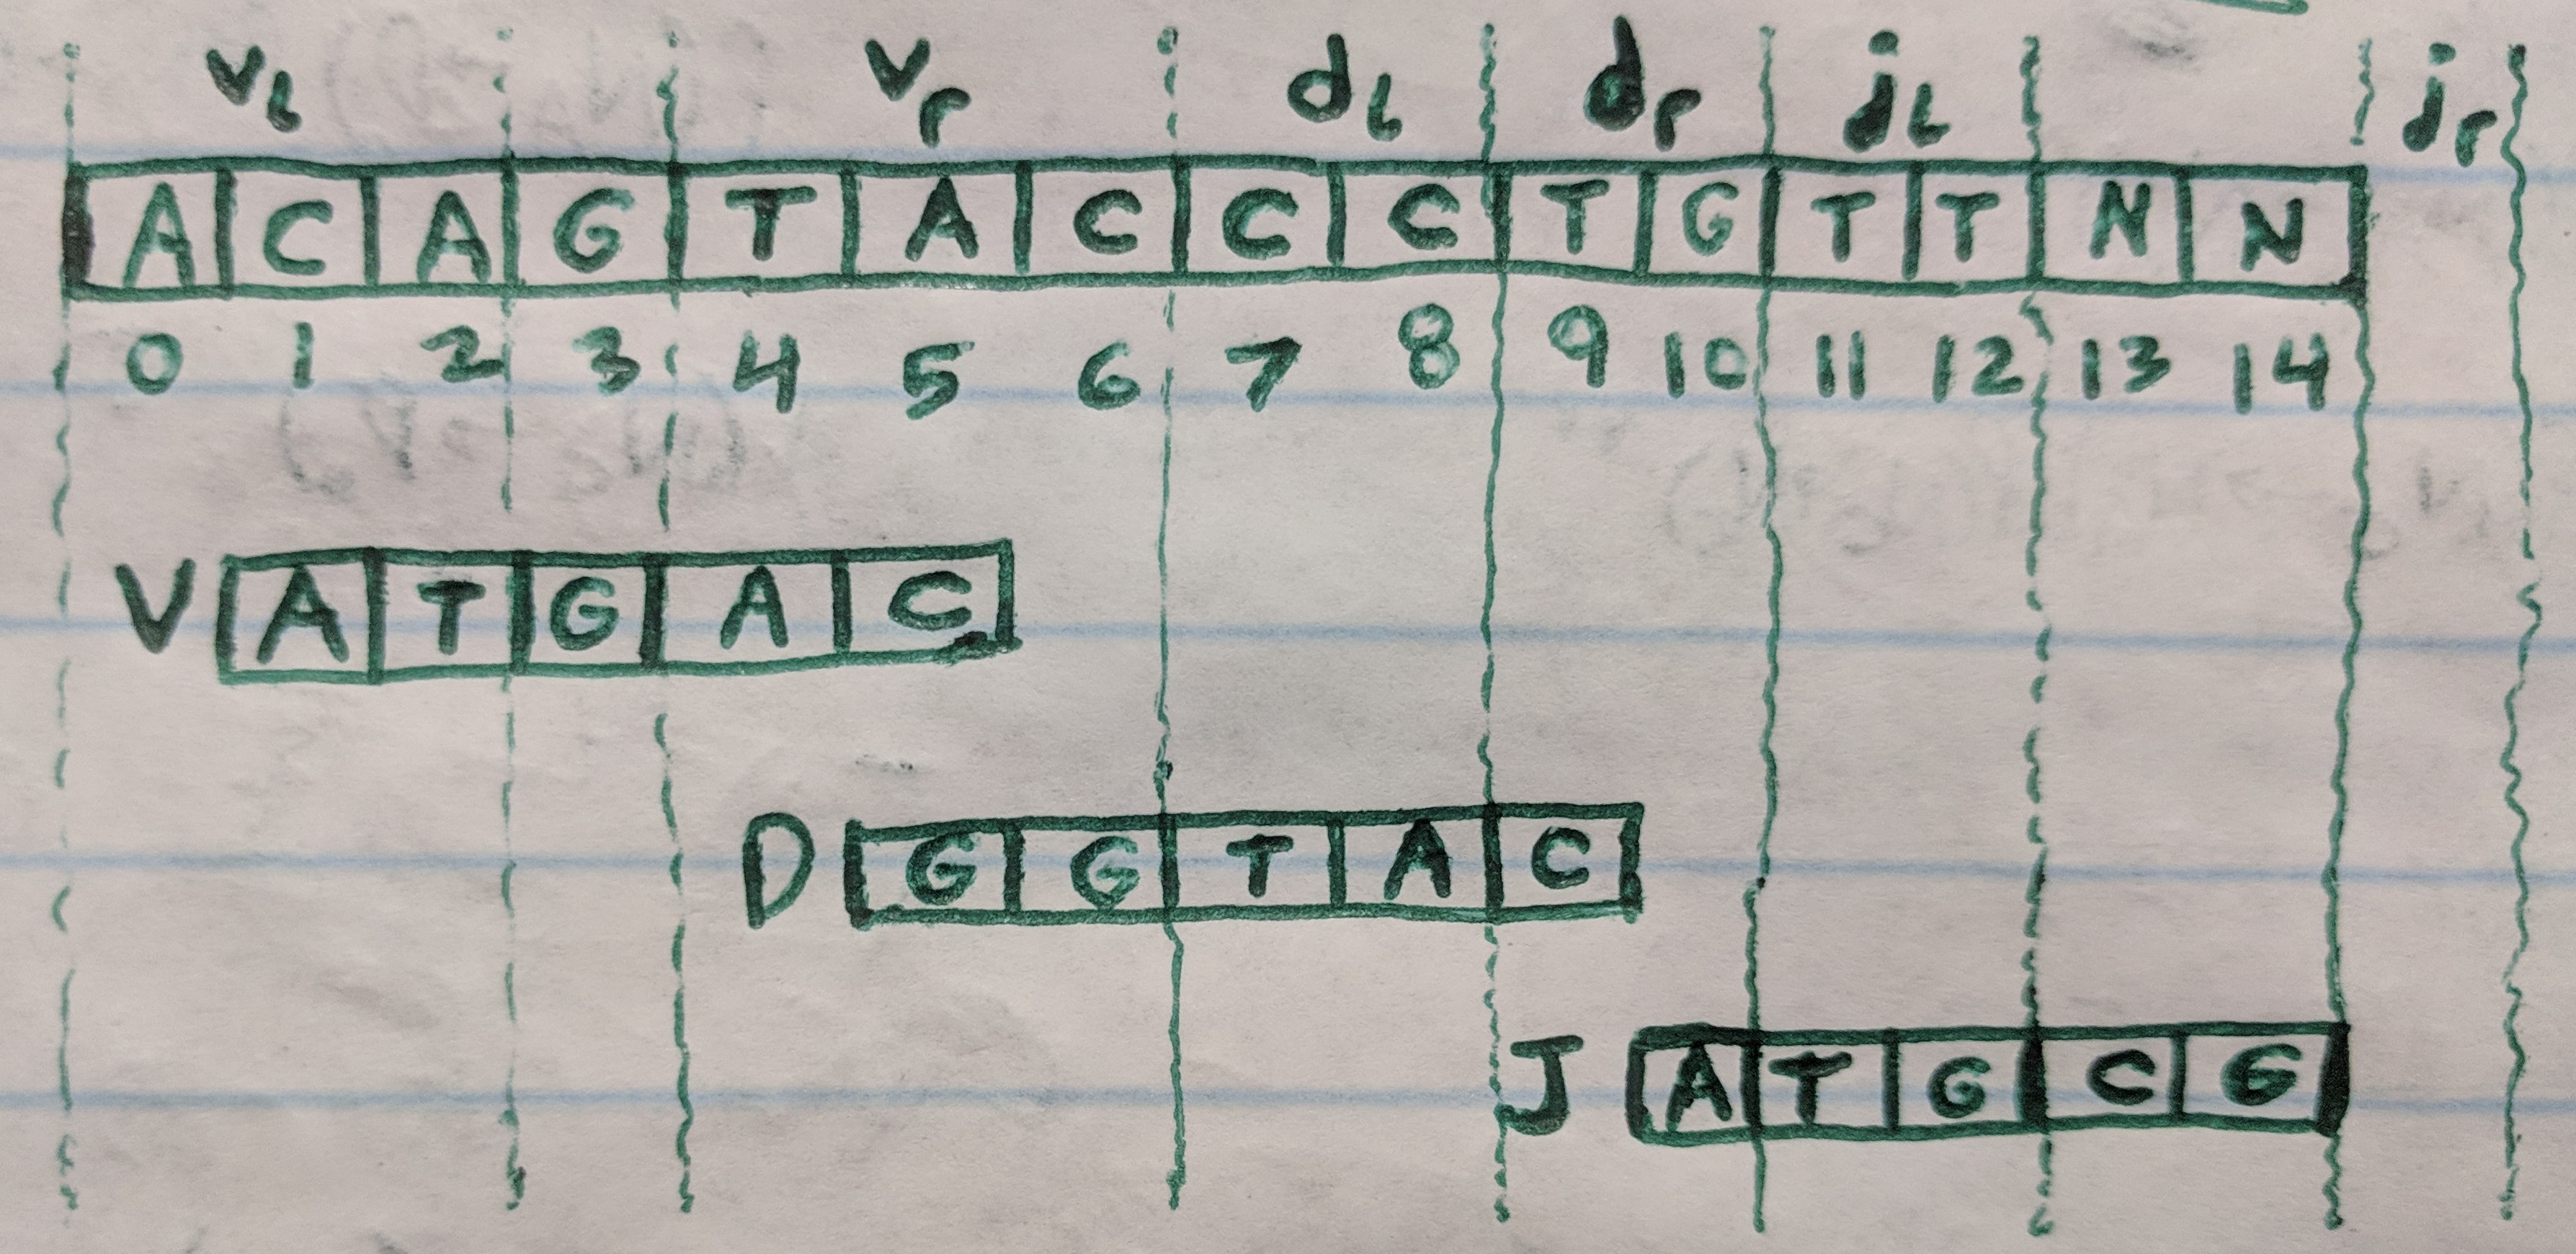 v_l v_r d_l d_r j_l j_r
A C A G T A C C C T G T T N N
0 1 2 3 4 5 6 7 8 9 10 11 12 13 14
V A T G A C
D G G T A C
J A T G C G